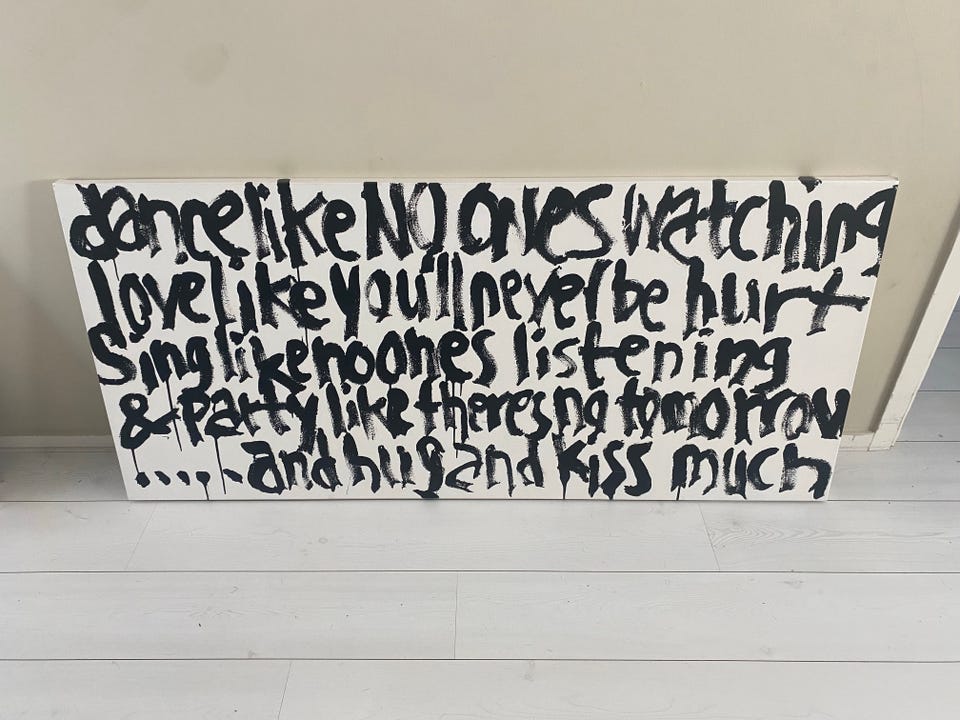 dance like NO ONes watching
love like you'll never be hurt
Sing like no ones listening
& party like theres no tomorrow
..... and hug and kiss much